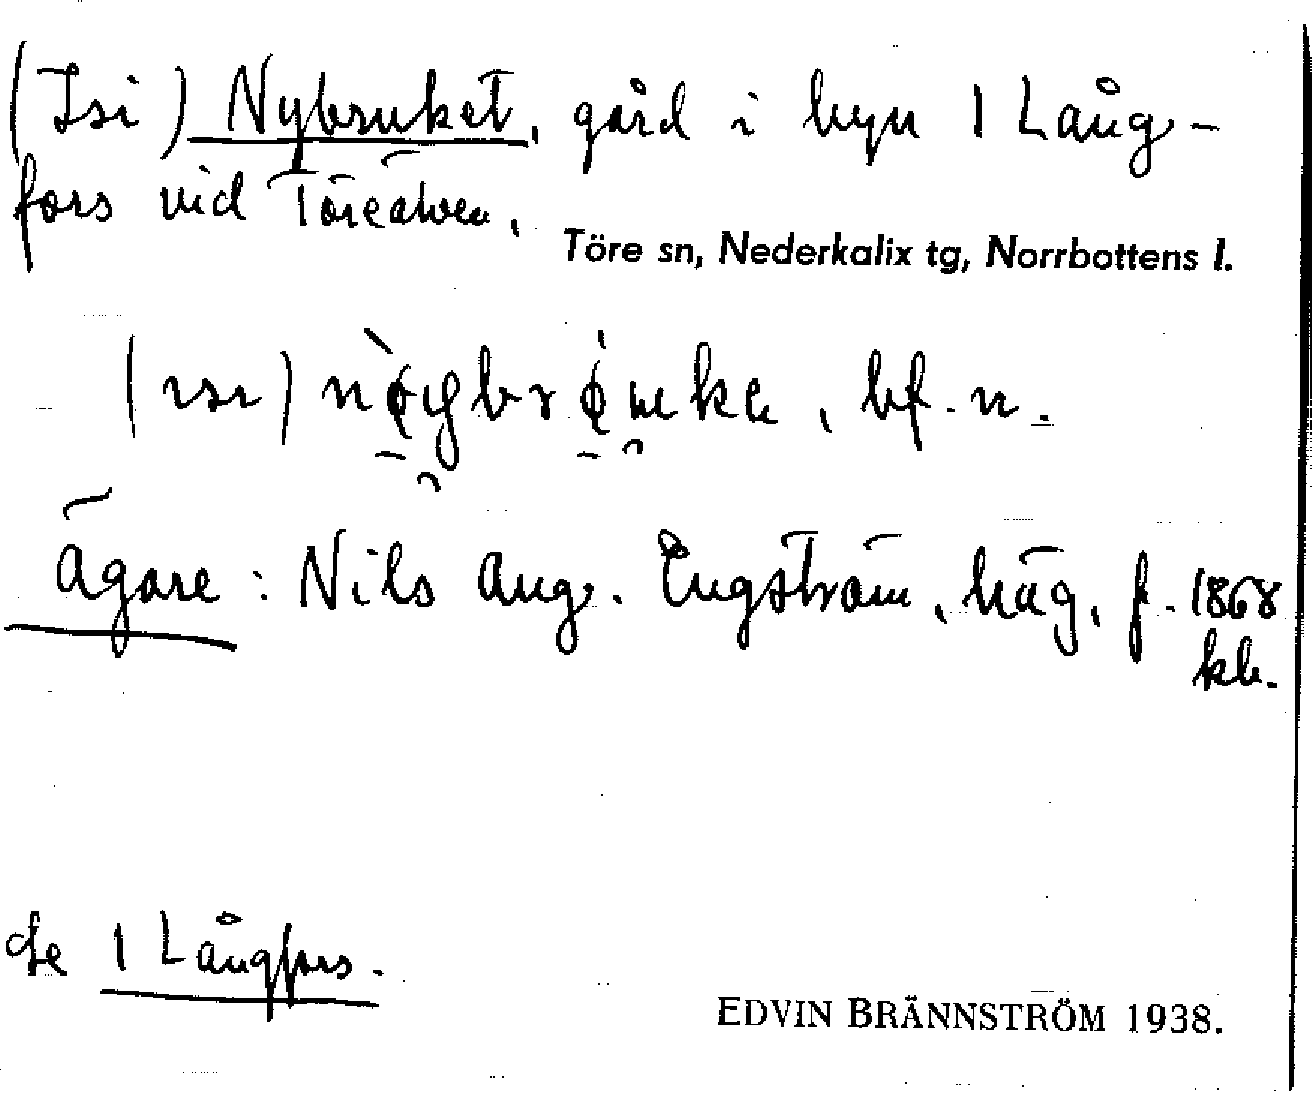 (Isi) Nybruket, gård i byn 1 Lång-
fors vid Töreälven,
Töre sn, Nederkalix tg, Norrbottens l.
bf. n.
Ägare: Nils Aug. Engström, häg, f. 1868
kb.
se 1 Långfors.
EDVIN BRÄNNSTRÖM 1938.